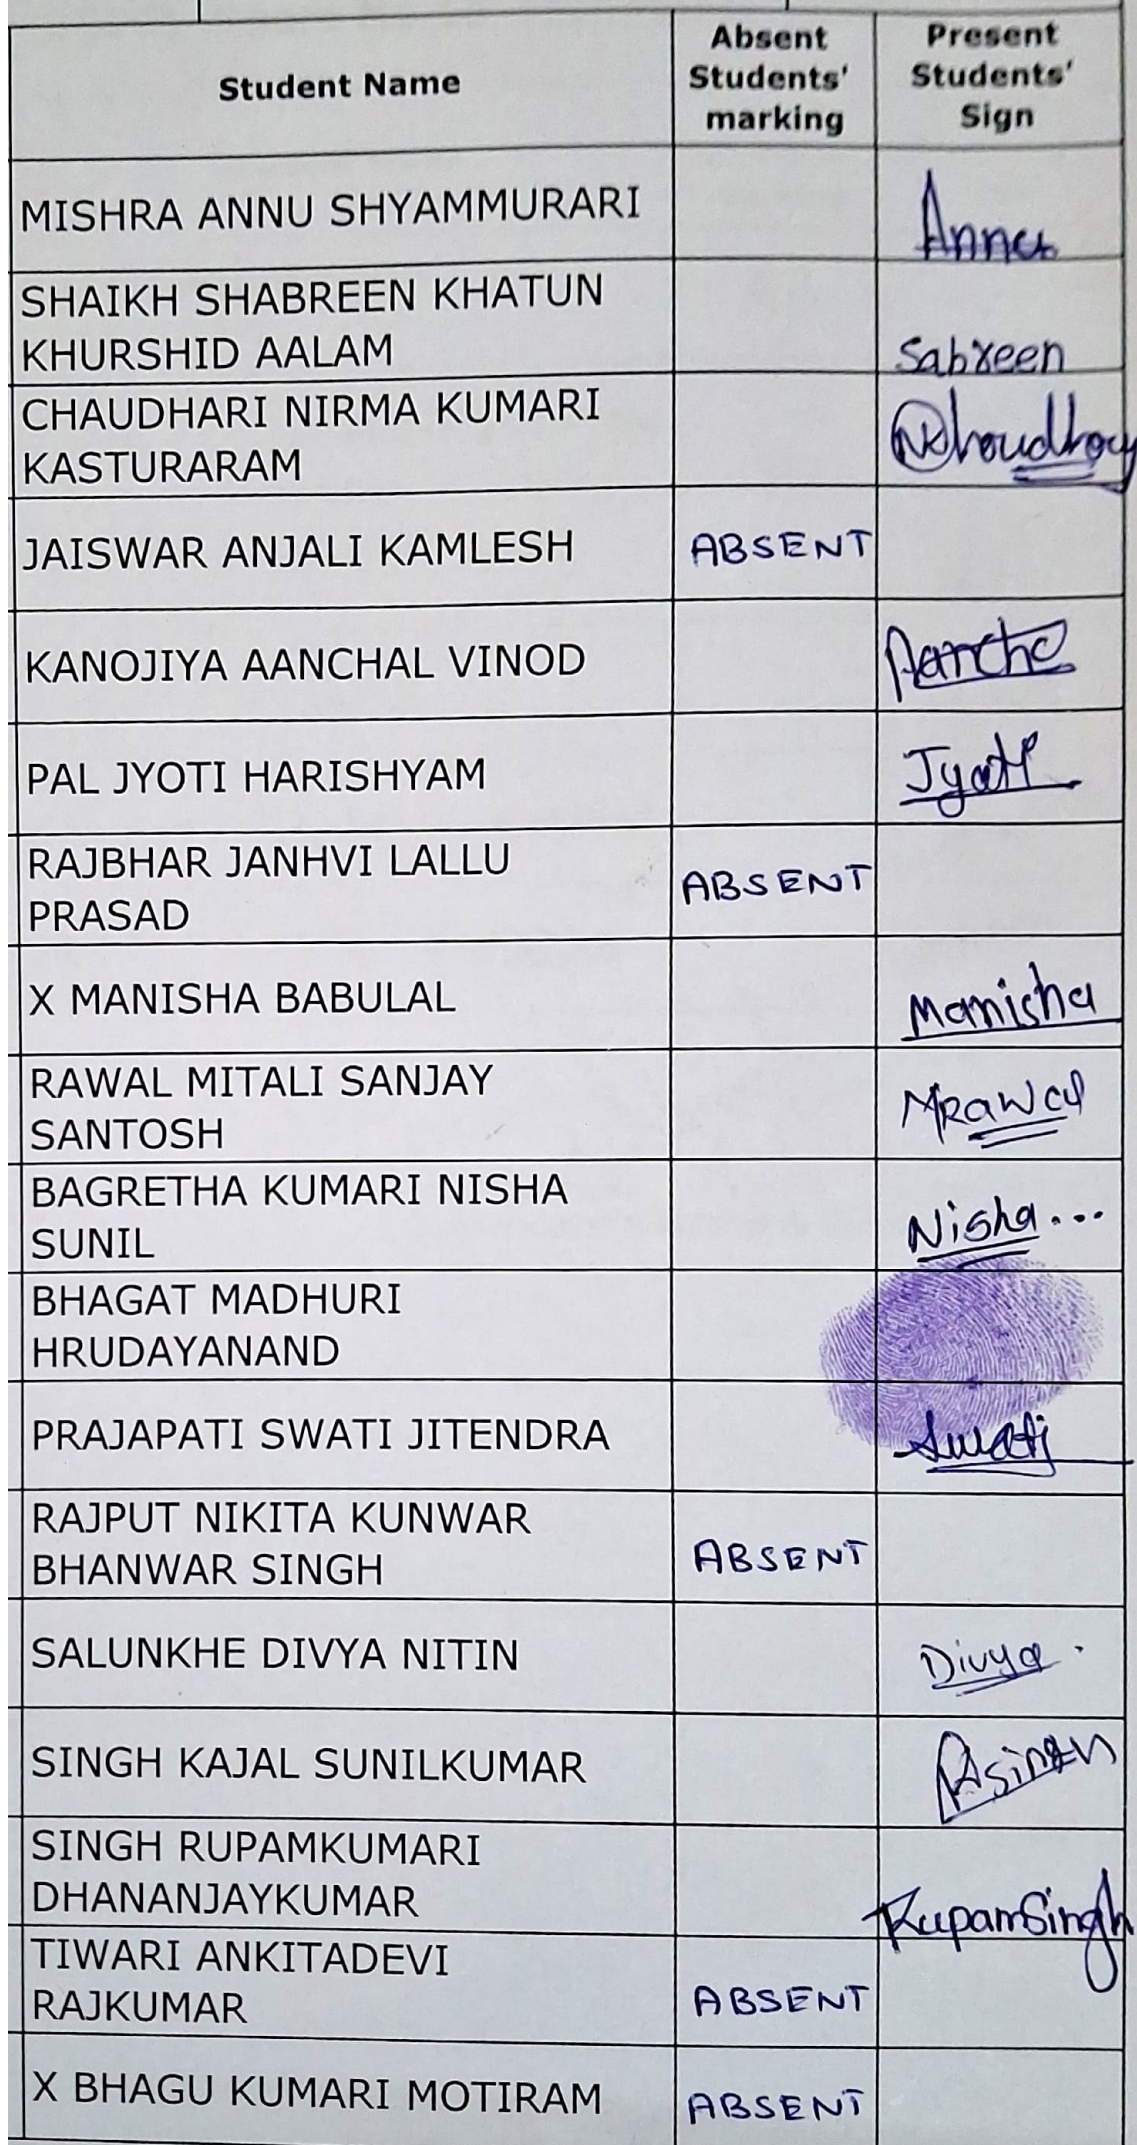 Student Name
Absent
Students'
marking
Present
Students'
Sign
MISHRA ANNU SHYAMMURARI
Annu
SHAIKH SHABREEN KHATUN
KHURSHID AALAM
Sabreen
CHAUDHARI NIRMA KUMARI
KASTURARAM
NChoudhary
JAISWAR ANJALI KAMLESH
ABSENT
KANOJIYA AANCHAL VINOD
PAL JYOTI HARISHYAM
Jyoti
RAJBHAR JANHVI LALLU
PRASAD
ABSENT
X MANISHA BABULAL
Manisha
RAWAL MITALI SANJAY
SANTOSH
MRawal
BAGRETHA KUMARI NISHA
SUNIL
Nisha...
BHAGAT MADHURI
HRUDAYANAND
PRAJAPATI SWATI JITENDRA
Swati
RAJPUT NIKITA KUNWAR
BHANWAR SINGH
ABSENT
SALUNKHE DIVYA NITIN
Divya.
SINGH KAJAL SUNILKUMAR
SINGH RUPAMKUMARI
DHANANJAYKUMAR
RupamSingh
TIWARI ANKITADEVI
RAJKUMAR
ABSENT
X BHAGU KUMARI MOTIRAM
ABSENT